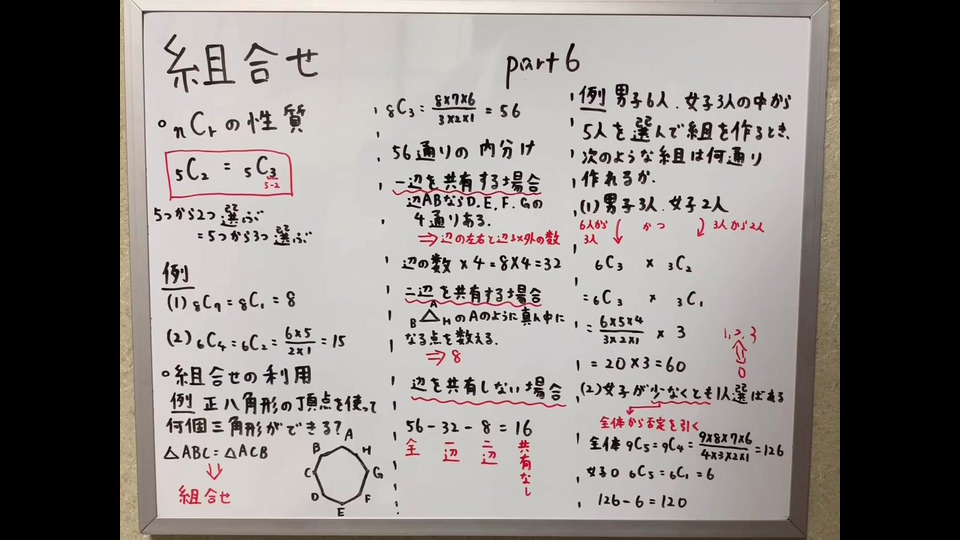 組合せ
part6
○nCrの性質
5C2 = 5C3
5-2
5つから2つ選ぶ
=5つから3つ選ぶ
例
(1) 8C7=8C1=8
(2) 6C4=6C2=6×5/2×1=15
○組合せの利用
例 正八角形の頂点を使って
何個三角形ができる?
△ABC=△ACB
⇓
組合せ
A
B
H
C
G
D
F
E
8C3=8×7×6/3×2×1=56
56通りの内分け
一辺を共有する場合
辺ABならD.E.F.Gの
4通りある.
⇒辺の左右と辺以外の数
辺の数×4=8×4=32
二辺を共有する場合
A
B△HのAのように真ん中に
なる点を数える.
⇒8
辺を共有しない場合
56-32-8=16
全 一辺 二辺 共有なし
例 男子6人.女子3人の中から
5人を選んで組を作るとき、
次のような組は何通り
作れるか.
(1) 男子3人.女子2人
6人から3人 かつ 3人から2人
6C3 × 3C2
=6C3 × 3C1
=6×5×4/3×2×1 × 3
=20×3=60
1,2,3
⇕
0
(2)女子が少なくとも1人選ばれる
全体から否定を引く
全体 9C5=9C4=9×8×7×6/4×3×2×1=126
女子0 6C5=6C1=6
126-6=120